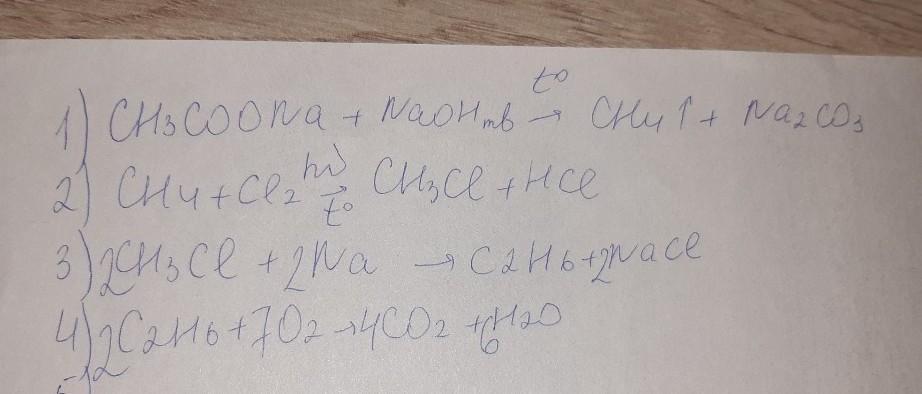 1) CH3COONa + NaOHтв t° → CH4↑ + Na2CO3
2) CH4 + Cl2 hν → t° CH3Cl + HCl
3) 2CH3Cl + 2Na → C2H6 + 2NaCl
4) 2C2H6 + 7O2 → 4CO2 + 6H2O